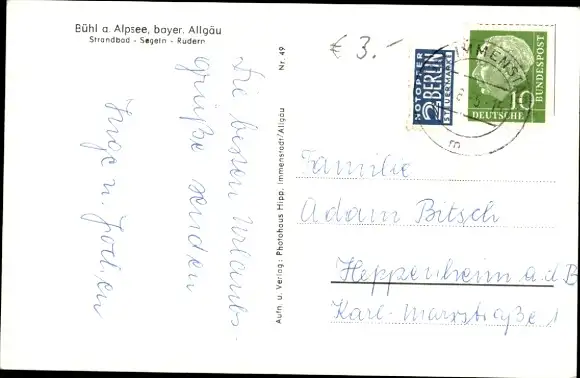 Bühl a. Alpsee, bayer. Allgäu
Strandbad - Segeln - Rudern
Die besten Urlaubs-
grüße senden
Inge u. Jochen
Nr. 49
Aufn. u. Verlag: Photohaus Hipp, Immenstadt/Allgäu
€ 3.-
NOTOPFER
2 BERLIN
STEUERMARKE
IMMENST
10
DEUTSCHE
BUNDESPOST
Familie
Adam Bitsch
Heppenheim a.d B
Karl-Marxstraße 1